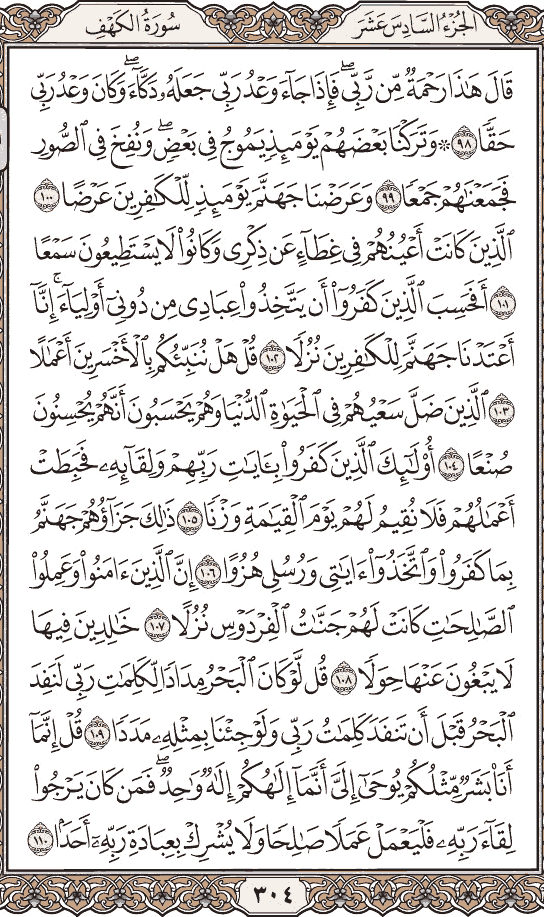 الجُزْءُ السَّادِسَ عَشَرَ سُورَةُ الكَهْفِ
قَالَ هَٰذَا رَحْمَةٌ مِّن رَّبِّي ۖ فَإِذَا جَآءَ وَعْدُ رَبِّي جَعَلَهُۥ دَكَّآءَ ۖ وَكَانَ وَعْدُ رَبِّي
حَقًّا ٩٨ ۞ وَتَرَكْنَا بَعْضَهُمْ يَوْمَئِذٍ يَمُوجُ فِي بَعْضٍ ۖ وَنُفِخَ فِي ٱلصُّورِ
فَجَمَعْنَٰهُمْ جَمْعًا ٩٩ وَعَرَضْنَا جَهَنَّمَ يَوْمَئِذٍ لِّلْكَٰفِرِينَ عَرْضًا ١٠٠
ٱلَّذِينَ كَانَتْ أَعْيُنُهُمْ فِي غِطَآءٍ عَن ذِكْرِي وَكَانُوا۟ لَا يَسْتَطِيعُونَ سَمْعًا
١٠١ أَفَحَسِبَ ٱلَّذِينَ كَفَرُوٓا۟ أَن يَتَّخِذُوا۟ عِبَادِي مِن دُونِيٓ أَوْلِيَآءَ ۚ إِنَّآ
أَعْتَدْنَا جَهَنَّمَ لِلْكَٰفِرِينَ نُزُلًا ١٠٢ قُلْ هَلْ نُنَبِّئُكُم بِٱلْأَخْسَرِينَ أَعْمَٰلًا
١٠٣ ٱلَّذِينَ ضَلَّ سَعْيُهُمْ فِي ٱلْحَيَوٰةِ ٱلدُّنْيَا وَهُمْ يَحْسَبُونَ أَنَّهُمْ يُحْسِنُونَ
صُنْعًا ١٠٤ أُو۟لَٰٓئِكَ ٱلَّذِينَ كَفَرُوا۟ بِـَٔايَٰتِ رَبِّهِمْ وَلِقَآئِهِۦ فَحَبِطَتْ
أَعْمَٰلُهُمْ فَلَا نُقِيمُ لَهُمْ يَوْمَ ٱلْقِيَٰمَةِ وَزْنًا ١٠٥ ذَٰلِكَ جَزَآؤُهُمْ جَهَنَّمُ
بِمَا كَفَرُوا۟ وَٱتَّخَذُوٓا۟ ءَايَٰتِي وَرُسُلِي هُزُوًا ١٠٦ إِنَّ ٱلَّذِينَ ءَامَنُوا۟ وَعَمِلُوا۟
ٱلصَّٰلِحَٰتِ كَانَتْ لَهُمْ جَنَّٰتُ ٱلْفِرْدَوْسِ نُزُلًا ١٠٧ خَٰلِدِينَ فِيهَا
لَا يَبْغُونَ عَنْهَا حِوَلًا ١٠٨ قُل لَّوْ كَانَ ٱلْبَحْرُ مِدَادًا لِّكَلِمَٰتِ رَبِّي لَنَفِدَ
ٱلْبَحْرُ قَبْلَ أَن تَنفَدَ كَلِمَٰتُ رَبِّي وَلَوْ جِئْنَا بِمِثْلِهِۦ مَدَدًا ١٠٩ قُلْ إِنَّمَآ
أَنَا۠ بَشَرٌ مِّثْلُكُمْ يُوحَىٰٓ إِلَيَّ أَنَّمَآ إِلَٰهُكُمْ إِلَٰهٌ وَٰحِدٌ ۖ فَمَن كَانَ يَرْجُوا۟
لِقَآءَ رَبِّهِۦ فَلْيَعْمَلْ عَمَلًا صَٰلِحًا وَلَا يُشْرِكْ بِعِبَادَةِ رَبِّهِۦٓ أَحَدًۢا ١١٠
٣٠٤